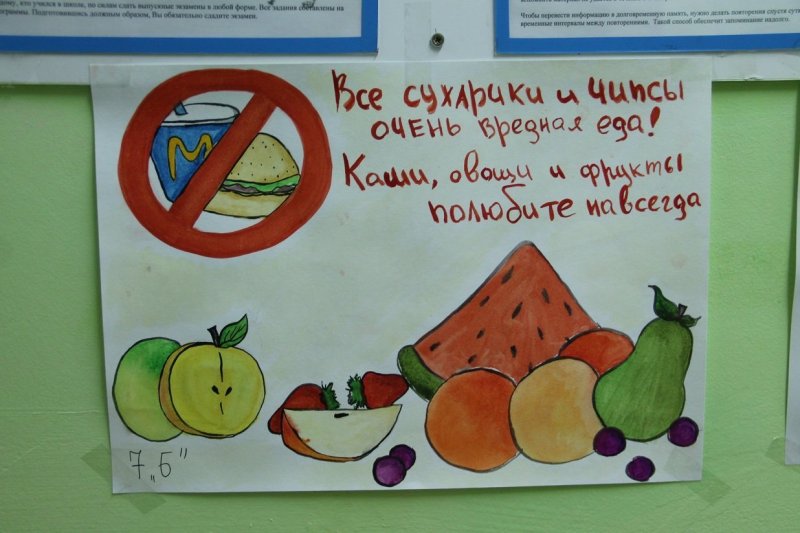 дому, кто учился в школе, по силам сдать выпускные экзамены в любой форме. Все задания составлены на
программы. Подготовившись должным образом, Вы обязательно сдадите экзамен.
Чтобы перевести информацию в долговременную память, нужно делать повторения спустя сутки
временные интервалы между повторениями. Такой способ обеспечит запоминание надолго.
Все сухарики и чипсы
очень вредная еда!
Каши, овощи и фрукты
полюбите навсегда
M
7 „Б"